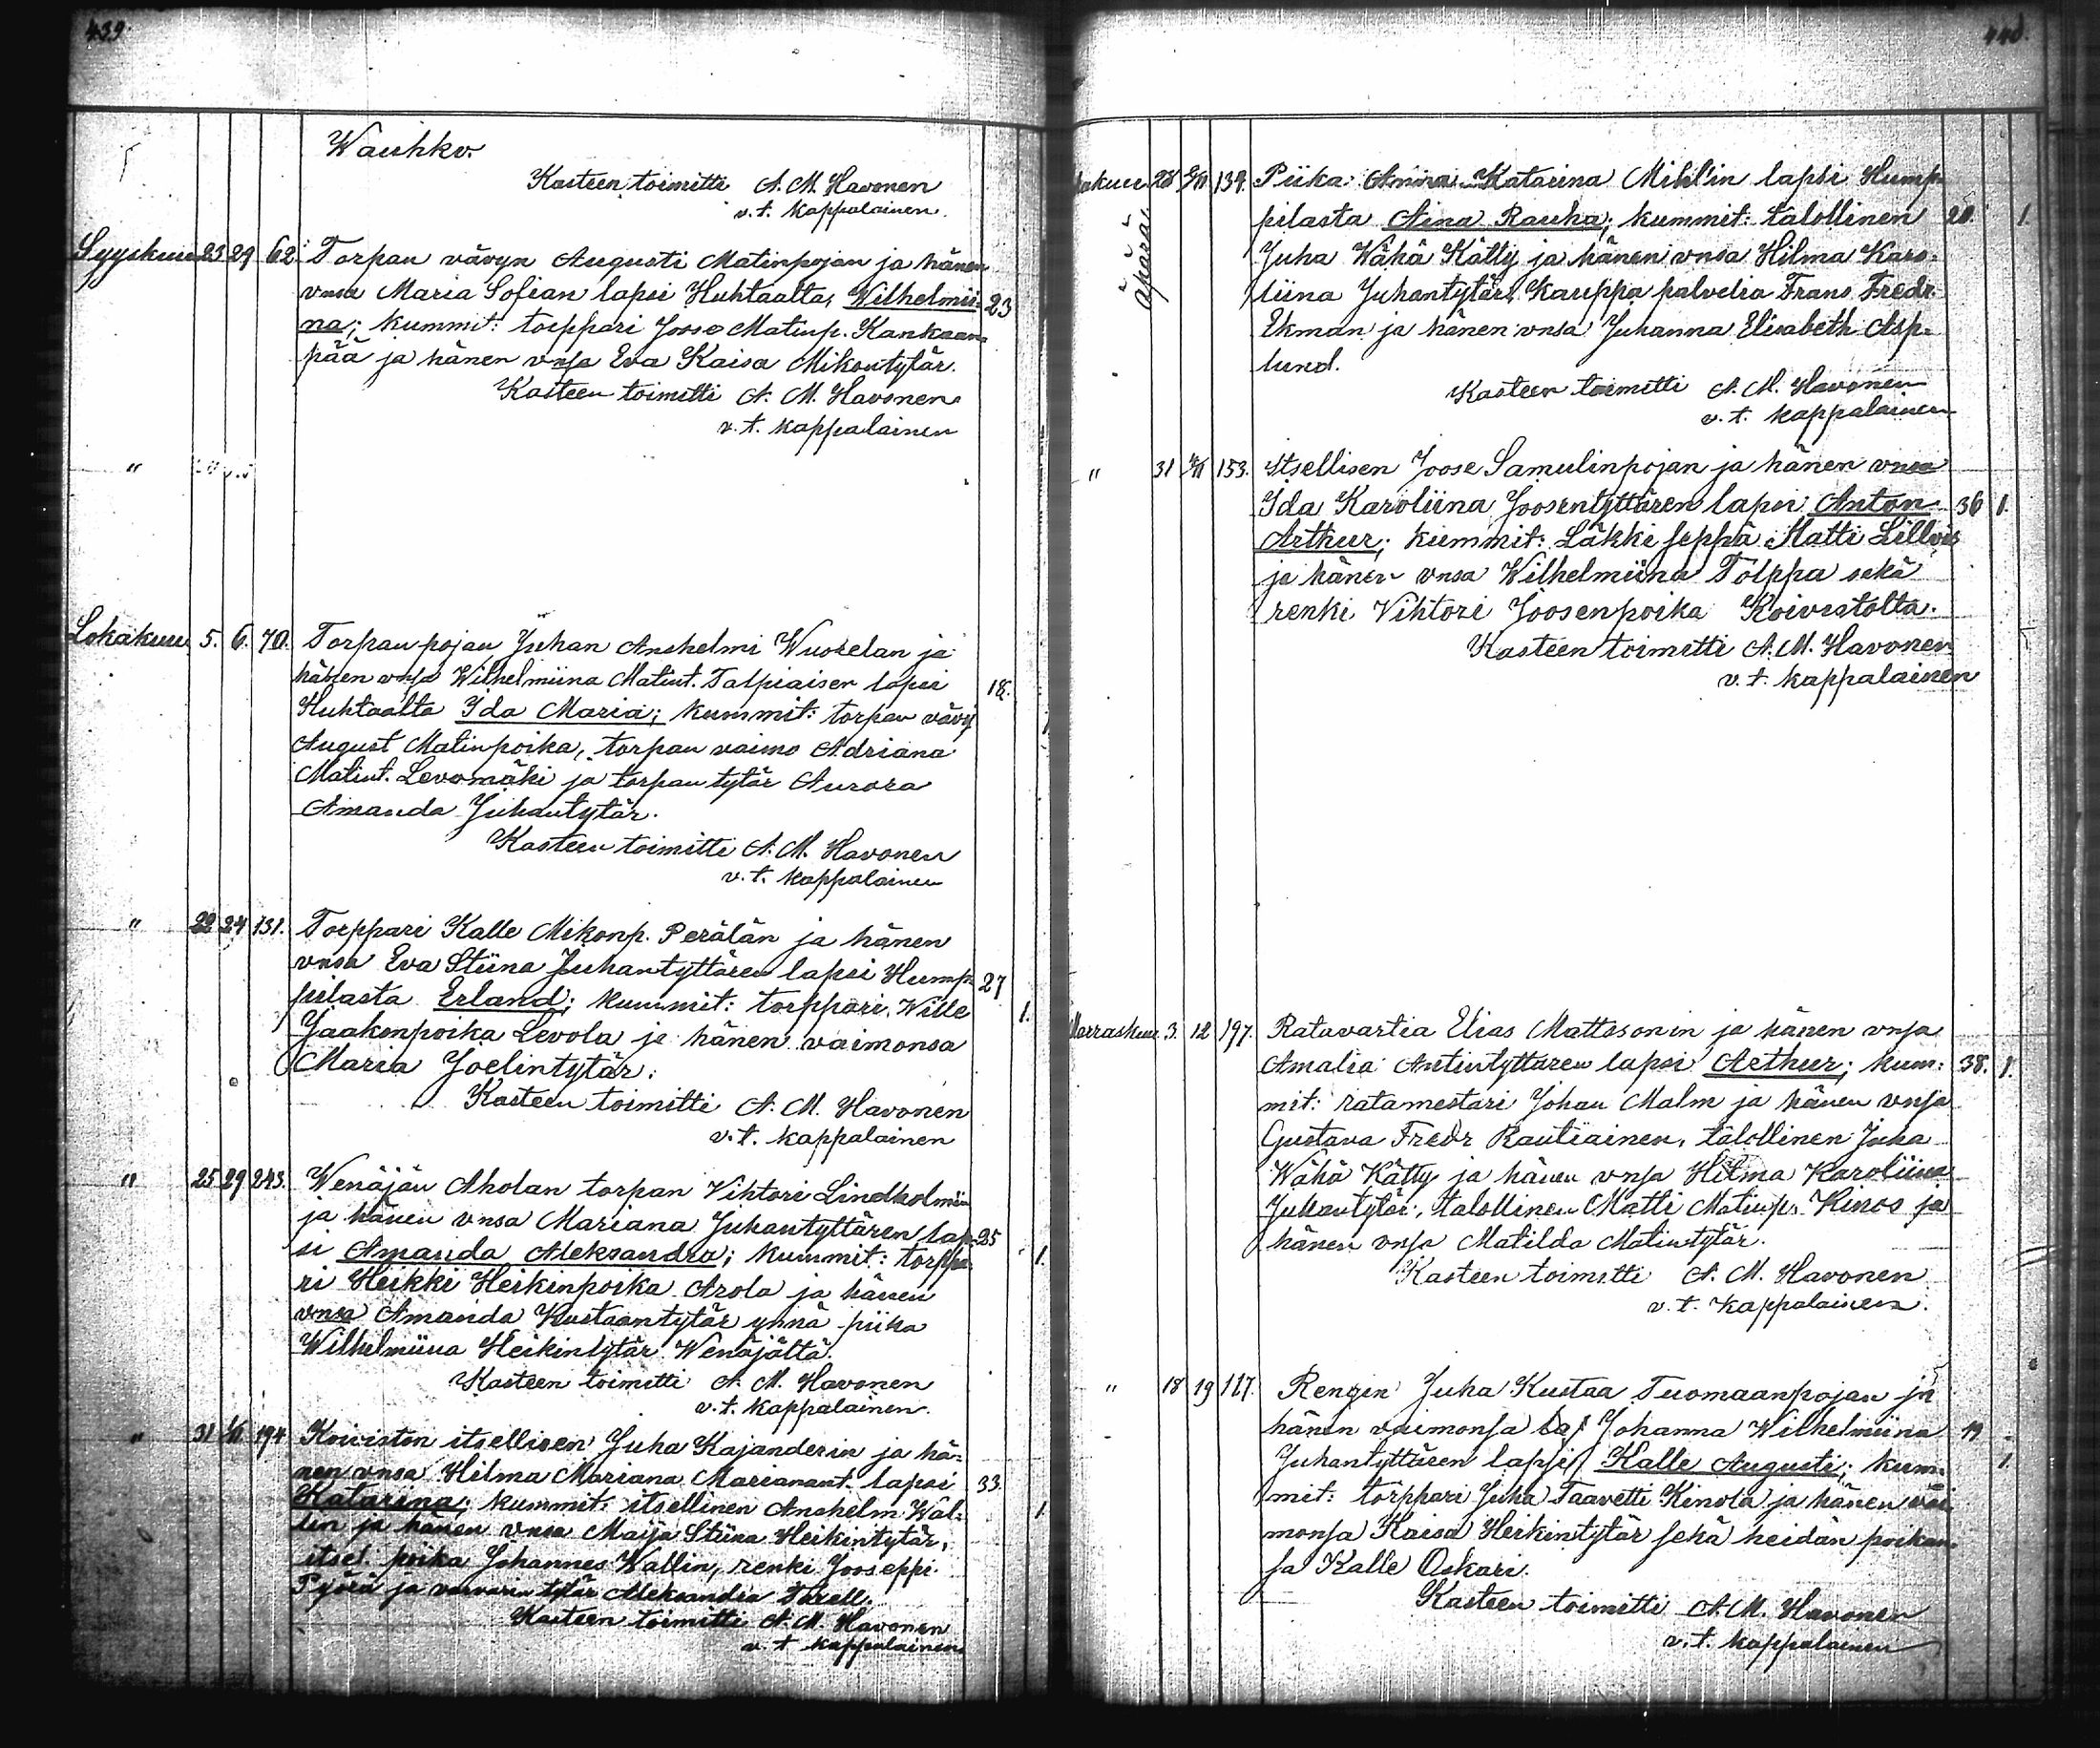 439.
Wauhko.
Kasteen toimitti A. M. Havonen
v. t. kappalainen.
Syyskuu 23 29 62. Torpan vävyn Augusti Matinpojan ja hänen
vnsa Maria Sofian lapsi Huhtaalta, Wilhelmii- 23
na; kummit: torppari Joose Matinp. Kankaan-
pää ja hänen vnsa Eva Kaisa Mikontytär.
Kasteen toimitti A. M. Havonen
v. t. kappalainen
"
Lokakuu 5. 6. 70. Torpan pojan Juhan Anshelmi Wuorelan ja
hänen vnsa Wilhelmiina Matint. Talpiaisen lapsi 18.
Huhtaalta Ida Maria; kummit: torpan vävy
August Matinpoika, torpan vaimo Adriana 1
Matint. Levomäki ja torpan tytär Aurora
Amanda Juhantytär.
Kasteen toimitti A. M. Havonen
v. t. kappalainen
" 22 24 131. Torppari Kalle Mikonp. Perälän ja hänen
vnsa Eva Stiina Juhantyttären lapsi Hump- 27
pilasta Erland; kummit: torppari Wille 1.
Jaakonpoika Levola ja hänen vaimonsa
Maria Joelintytär.
Kasteen toimitti A. M. Havonen
v. t. kappalainen
" 25 29 243. Wenäjän Aholan torpan Vihtori Lindholmin
ja hänen vnsa Mariana Juhantyttären lap- 25
si Amanda Aleksandra; kummit: torppa- 1.
ri Heikki Heikinpoika Arola ja hänen
vnsa Amanda Kustaantytär ynnä piika
Wilhelmiina Heikintytär Wenäjältä.
Kasteen toimitti A. M. Havonen
v. t. kappalainen.
" 31 1/11 194 Koiviston itsellisen Juha Kajanderin ja hä-
nen vnsa Hilma Mariana Marianant. lapsi 33.
Katarina; kummit: itsellinen Anshelm Wal- 1.
lin ja hänen vnsa Maija Stiina Heikintytär,
itsel. poika Johannes Wallin, renki Jooseppi
Pyörä ja tytär Aleksandra
Kasteen toimitti A. M. Havonen
v. t. kappalainen
440.
28 139. Piika Anna Katarina Mikl'in lapsi Hump-
äpärä pilasta Aina Rauha; kummit: talollinen 20. 1.
Juha Wähä Kätty ja hänen vnsa Hilma Karo-
liina Juhantytär, kauppa palvelia Frans Fredr.
Ekman ja hänen vnsa Juhanna Elisabeth Asp-
lund.
Kasteen toimitti A. M. Havonen
v. t. kappalainen
" 31 153. Itsellisen Joose Samulinpojan ja hänen vnsa
Ida Karoliina Joosentyttären lapsi Anton 36 1.
Arthur; kummit: Läkkiseppä Matti
ja hänen vnsa Wilhelmiina Tolppa sekä
renki Vihtori Joosenpoika Koivistolta.
Kasteen toimitti A. M. Havonen
v. t. kappalainen
Marraskuu 3. 12 197. Ratavartia Elias Mattssonin ja hänen vnsa
Amalia Antintyttären lapsi Arthur; kum- 38. 1.
mit: ratamestari Johan Malm ja hänen vnsa
Gustava Fredr Rautiainen, talollinen Juha
Wähä Kätty ja hänen vnsa Hilma Karoliina
Juhantytär, talollinen Matti Matinp. Kinos ja
hänen vnsa Matilda Matintytär.
Kasteen toimitti A. M. Havonen
v. t. kappalainen.
" 18 19 117. Rengin Juha Kustaa Tuomaanpojan ja
hänen vaimonsa Johanna Wilhelmiina 19
Juhantyttären lapsi Kalle Augusti; kum- 1.
mit: torppari Juha Taavetti Kinola ja hänen vai-
monsa Kaisa Heikintytär sekä heidän poikan-
sa Kalle Oskari.
Kasteen toimitti A. M. Havonen
v. t. kappalainen